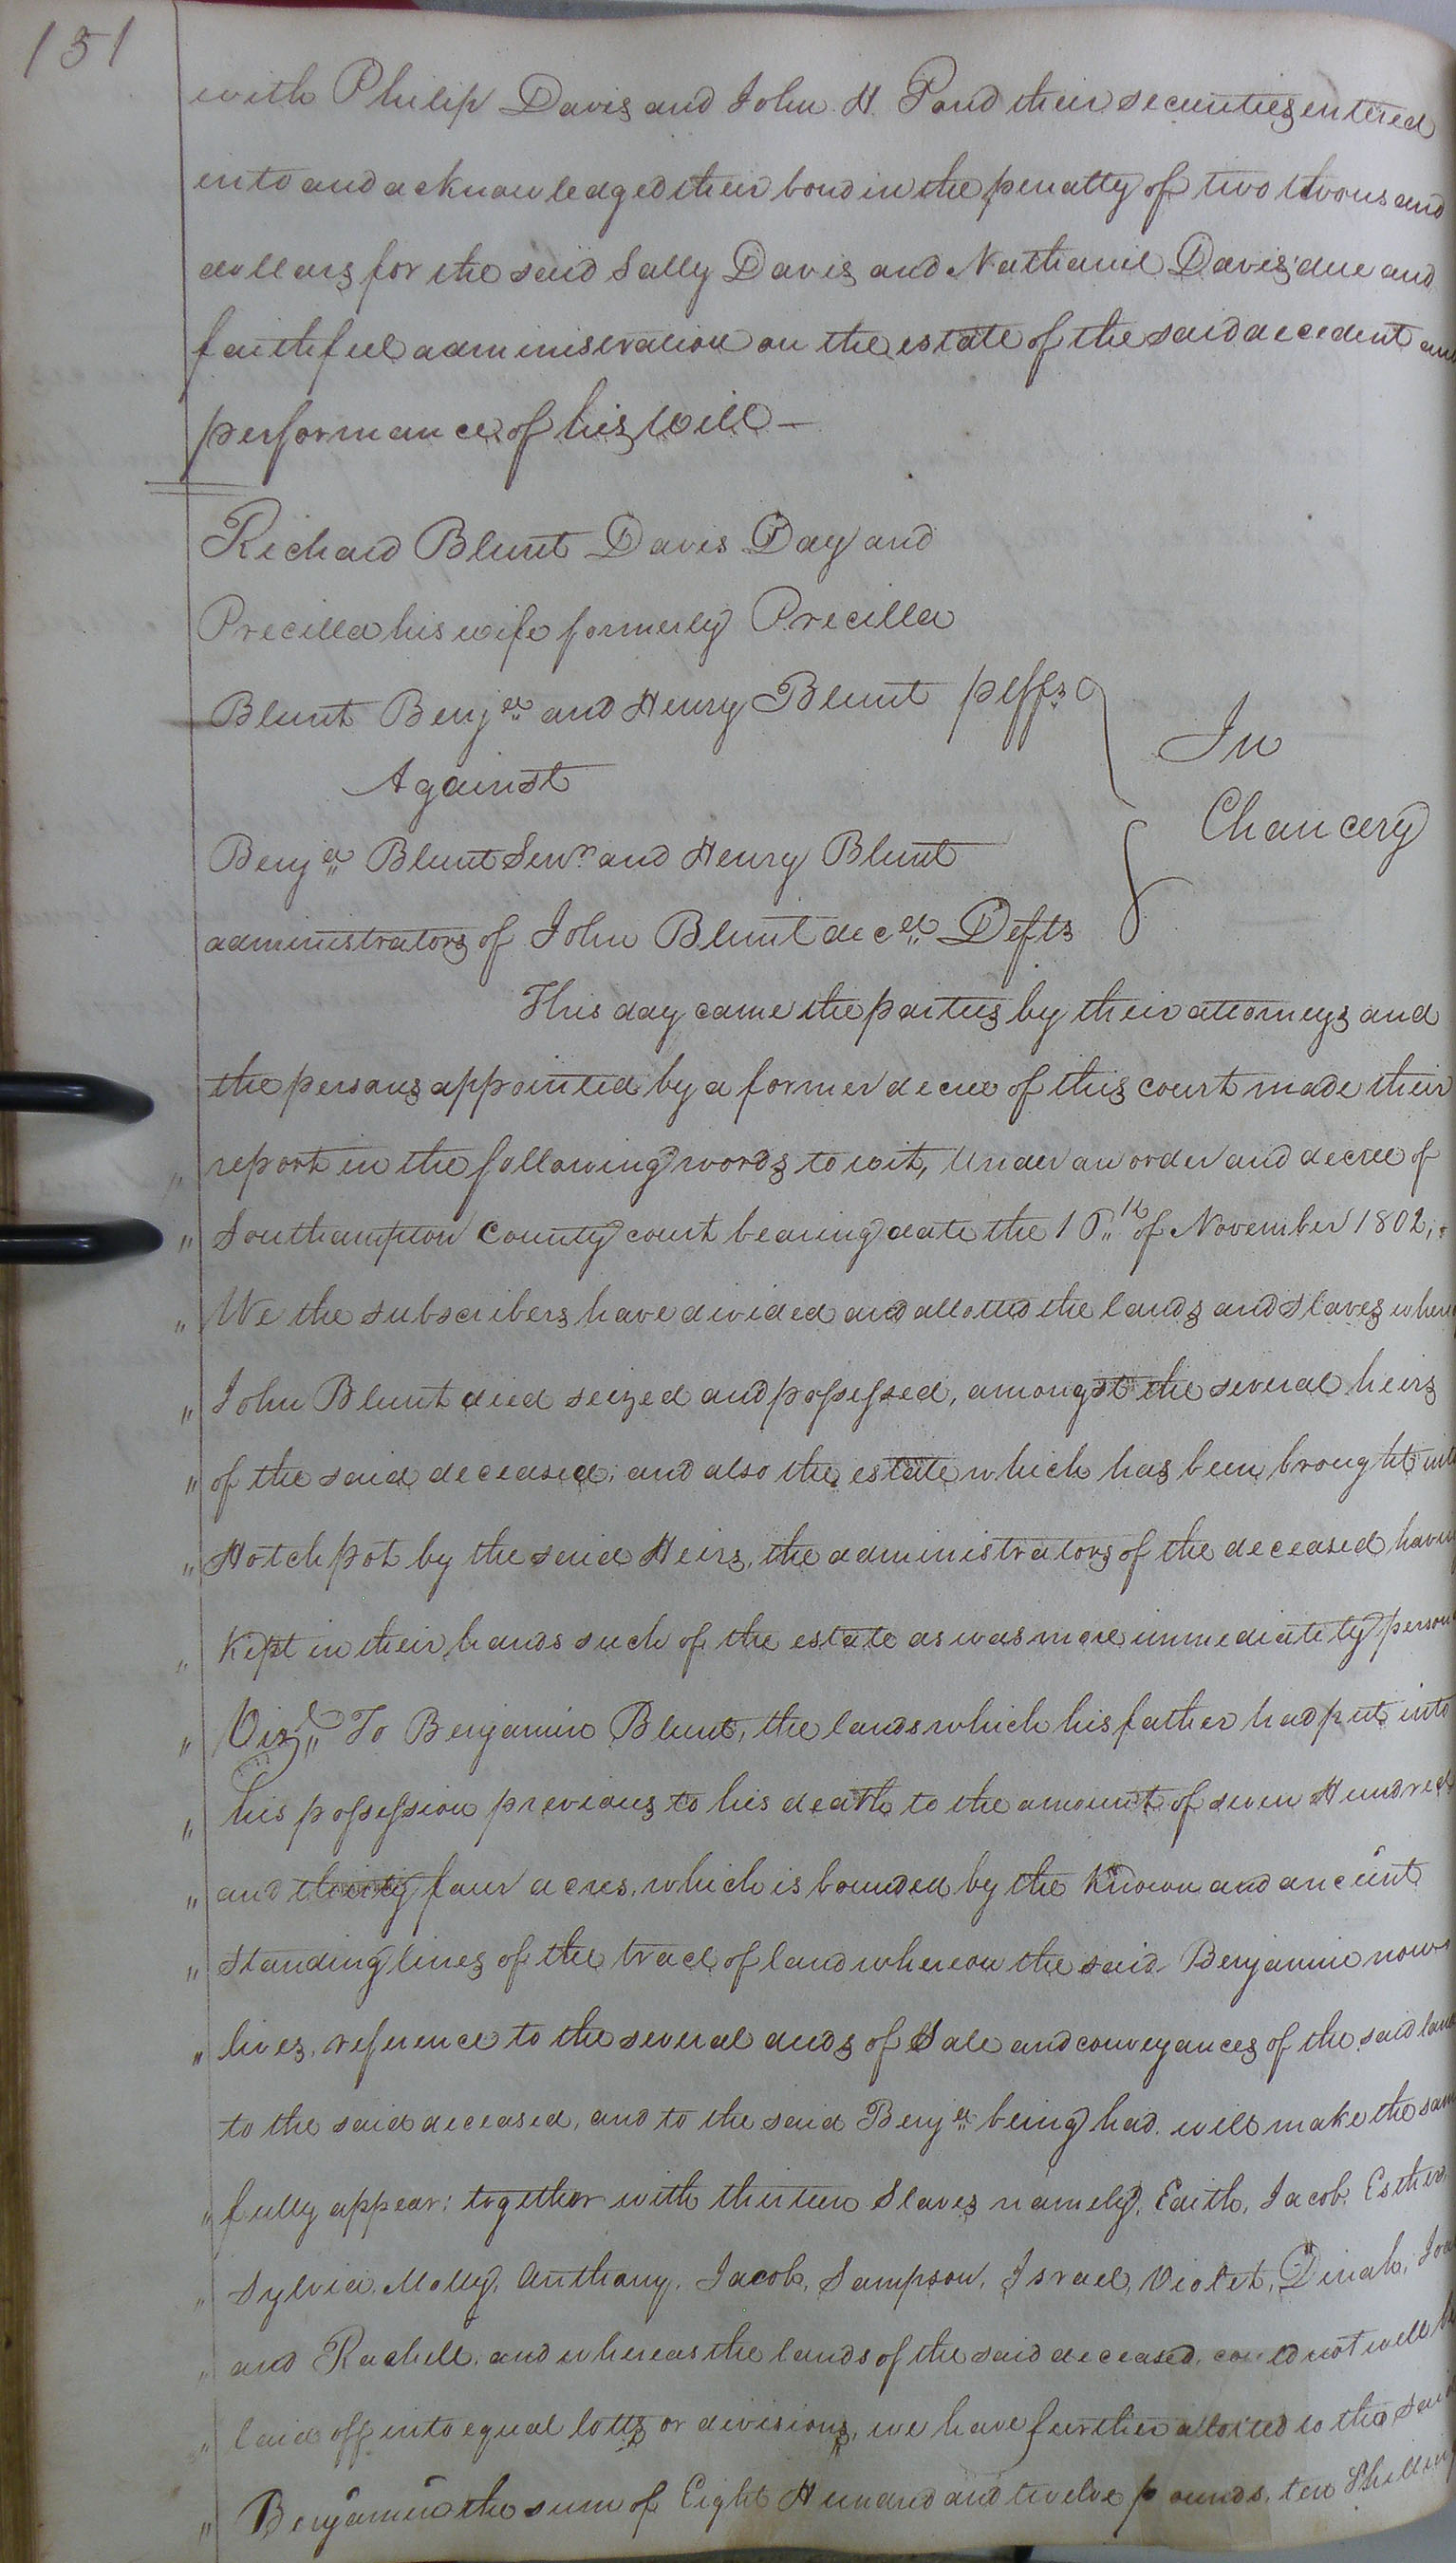 151
with Philip Davis and John H. Pond their securities entered
into and acknowledged their bond in the penalty of two thousand
dollars for the said Sally Davis and Nathaniel Davis' due and
faithful administration on the estate of the said decedent and
performance of his will —
Richard Blunt Davis Day and
Precilla his wife formerly Precilla
Blunt Benja. and Henry Blunt plffs
In
Against
Chancery
Benja. Blunt Senr. and Henry Blunt
administrators of John Blunt decd. Defts
This day came the parties by their attorneys and
the persons appointed by a former decree of this court made their
report in the following words to wit, Under an order and decree of
" Southampton County court bearing date the of November 1802,
" We the subscribers have divided and allotted the lands and slaves
" John Blunt died seized and possessed, amongst the several heirs
" of the said deceased; and also the estate which has been brought into
" Hotchpot by the said Heirs, the administrators of the deceased having
" Kept in their hands such of the estate as was more immediately
" Vizt. To Benjamin Blunt, the lands which his father had put into
" his possession previous to his death to the amount of seven Hundred
" and thirty four acres, which is bounded by the Known and ancient
" Standing lines of the tract of land whereon the said Benjamin now
" lives, reference to the several deeds of Sale and conveyances of the said
to the said deceased, and to the said Benja. being had, will make the same
" fully appear: together with thirteen Slaves namely, Edith, Jacob, Esther,
" Sylvia, Molly, Anthony, Jacob, Sampson, Israel, Violet, Dinah,
" and Rachell, and whereas the lands of the said deceased, could not well be
" laid off into equal lotts or divisions, we have further allotted to the said
" Benjamin the sum of Eight Hundred and twelve pounds, ten